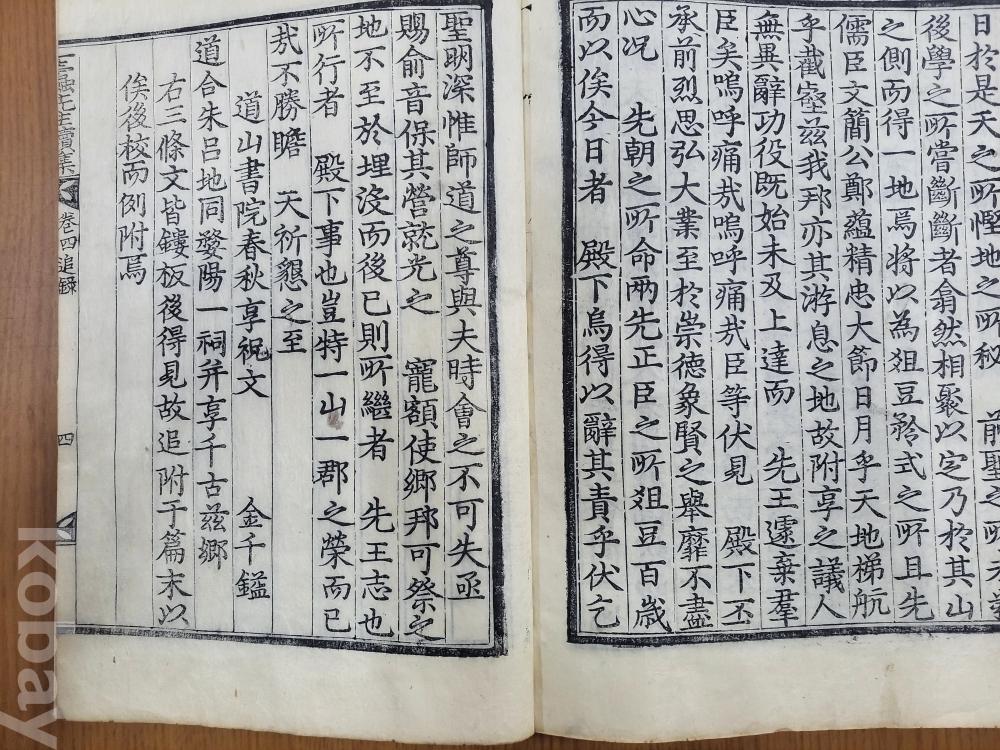 日於是天之所慳地之所秘　前聖之所未
後學之所嘗斷斷者翕然相聚以定乃於其山
之側而得一地焉將以為俎豆矜式之所且先
儒臣文簡公鄭蘊精忠大節日月乎天地梯航
乎截壑茲我邦亦其游息之地故附享之議人
無異辭功役既始未及上達而　先王遽棄羣
臣矣嗚呼痛哉嗚呼痛哉臣等伏見　殿下丕
承前烈思弘大業至於崇德象賢之舉靡不盡
心况　先朝之所命兩先正臣之所俎豆百歲
而以俟今日者　殿下烏得以辭其責乎伏乞
聖明深惟師道之尊與夫時會之不可失亟
賜俞音保其營就光之　寵額使鄉邦可祭之
地不至於埋沒而後已則所繼者　先王志也
所行者　殿下事也豈特一山一郡之榮而已
哉不勝瞻　天祈懇之至
道山書院春秋享祝文　金千鎰
道合朱呂地同婺陽一祠并享千古茲鄉
右三條文皆鏤板後得見故追附于篇末以
俟後校而例附焉
一蠹先生續集　卷四追錄　四
kobay